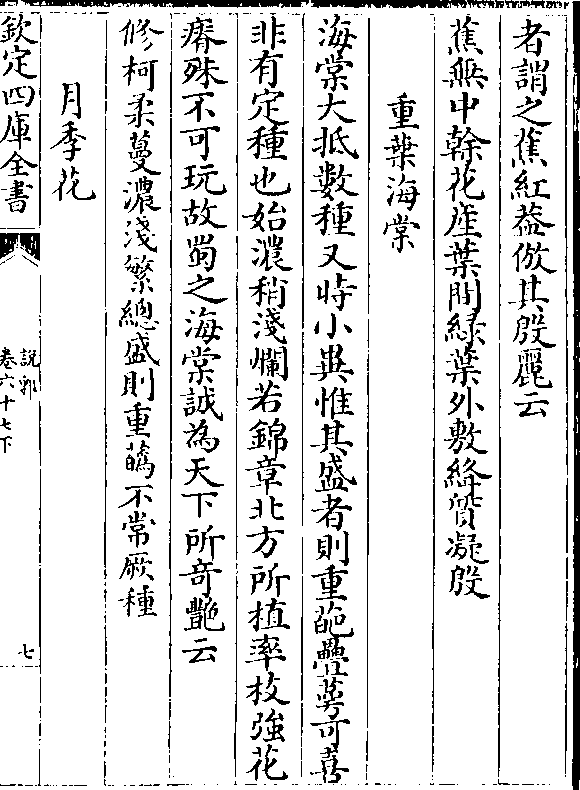 者謂之蕉紅葢倣其殷麗云
蕉無中幹花産葉間緑葉外敷絳質凝殷
重葉海棠
海棠大抵數種又時小異惟其盛者則重葩疊萼可喜
非有定種也始濃稍淺爛若錦章北方所植率枝強花
瘠殊不可玩故蜀之海棠誠為天下所竒艷云
修柯柔蔓濃淺繁總盛則重蘤不常厥種
月季花
欽定四庫全書
說郛
卷六十七下
七